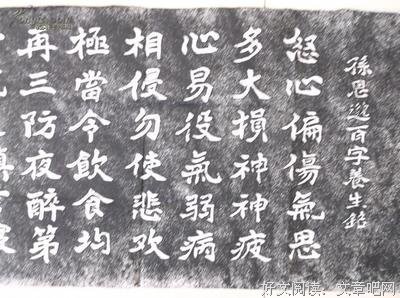 孫思邈百字養生銘
怒心偏傷氣思
多大損神神疲
心易役氣弱病
相侵勿使悲欢
極當令飲食均
再三防夜醉第
好文阅读：文章吧网